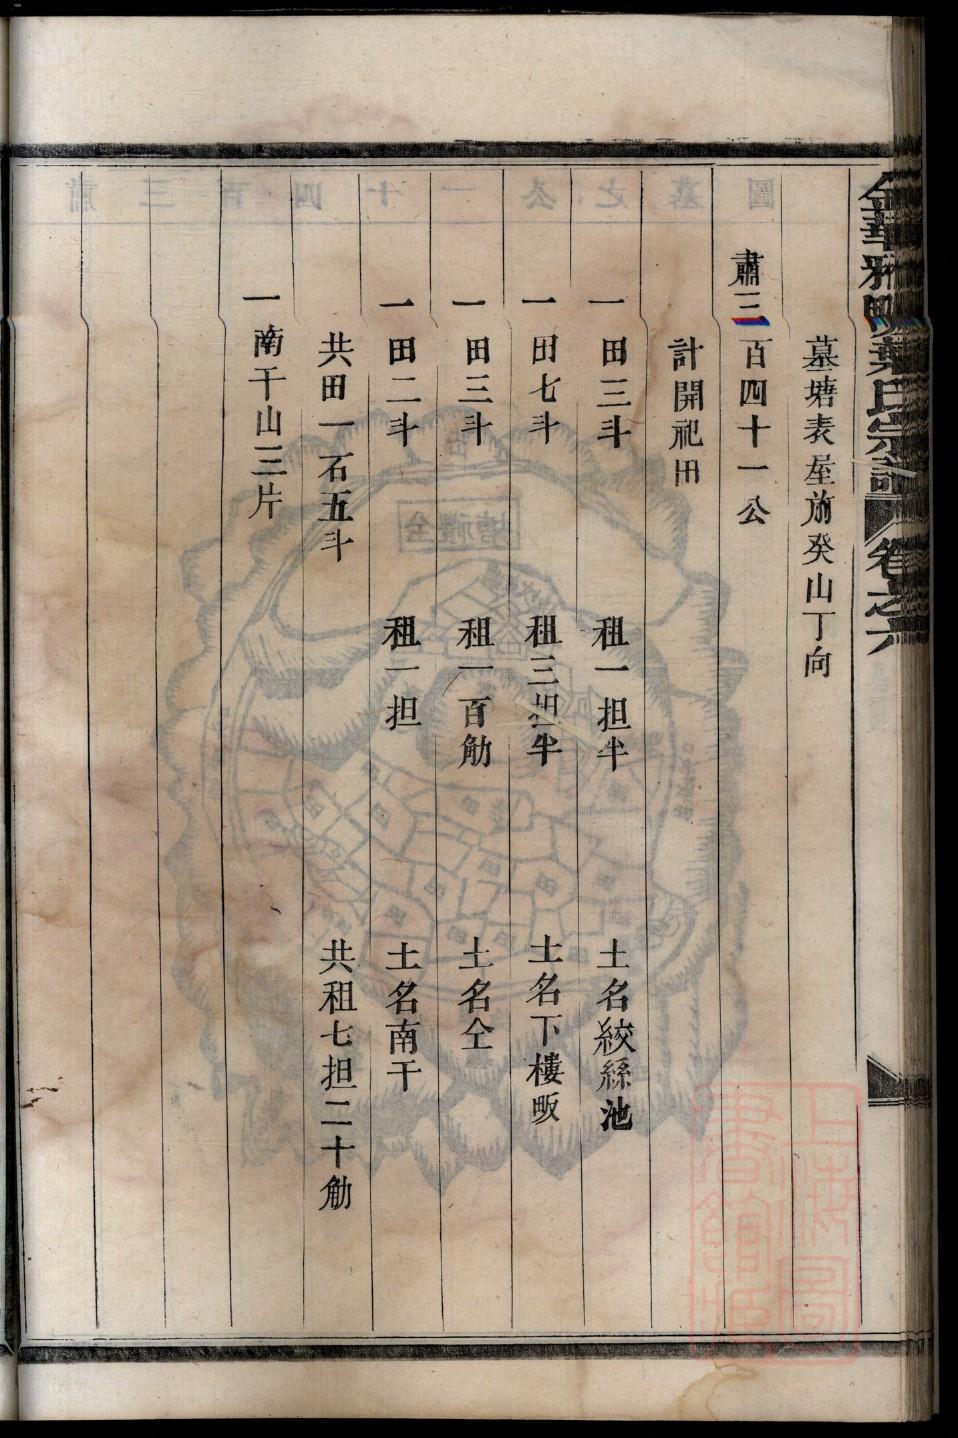 金華雅畈葉氏宗譜 卷之六
墓塘表屋前癸山丁向
肅三百四十一公
計開祀田
一田三斗 租一担半 土名絞絲池
一田七斗 租三担半 土名下樓畈
一田三斗 租一百觔 土名仝
一田二斗 租一担 土名南干
共田一石五斗 共租七担二十觔
一南干山三片
上海圖書館藏